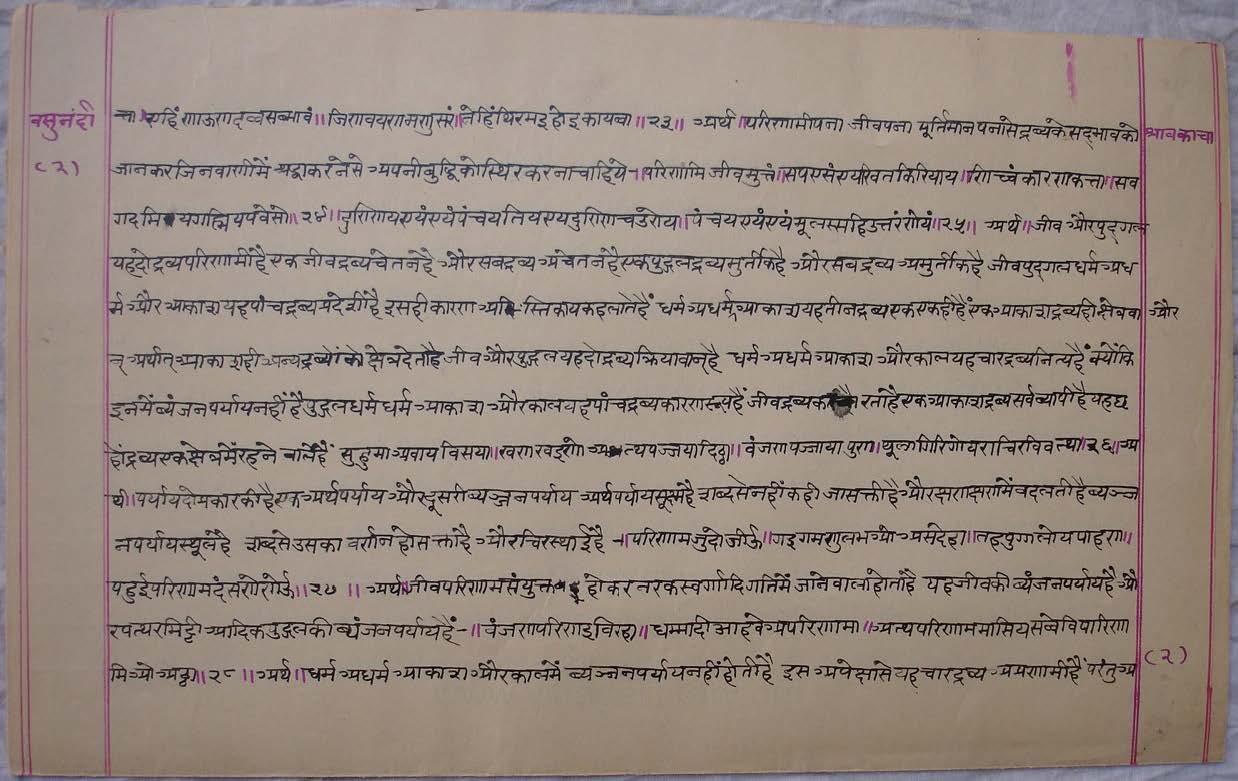 वसुनंदी
(२)
श्रावकाचा
त्ता एदहिं णाऊण दव्वसब्भावं॥ जिणवयणमणुसरं तेहिं थिरमइ होइ कायवा॥२३॥ अर्थ॥ परिणामीपना जीवपना मूर्तिमानपना से द्रव्य के सद्भाव को
जानकर जिनवाणी में श्रद्धा करने से अपनी बुद्धि को स्थिर करना चाहिये॥ परिणामि जीव मुत्तं॥ सपएसं एयखित्त किरियाय॥ णिच्चं कारण कत्ता॥ सव
गदमि यरह्मि यपवेसो॥२४॥ दुण्णिय एयं एयं पंच य तिय एय दुण्णि चउरोय॥ पंचय एयं एयं मूलस्सहि उत्तरं णेयं॥२५॥ अर्थ॥ जीव और पुद्गल
यह दो द्रव्य परिणामी है एक जीव द्रव्य चेतन है और सब द्रव्य अचेतन है एक पुद्गल द्रव्य मुर्तीक है और सब द्रव्य अमुर्तीक है जीव पुदगल धर्म अध
र्म और आकाश यह पांच द्रव्य प्रदेशी है इस ही कारण अस्तिकाय कहलाते हैं धर्म अधर्म आकाश यह तीन द्रव्य एक एक ही हैं एक आकाश द्रव्य ही क्षेत्रवा और
न् अर्थात् आकाश ही अन्य द्रव्यों को क्षेत्र देता है जीव और पुद्गल यह दो द्रव्य क्रियावान् है धर्म अधर्म आकाश और काल यह चार द्रव्य नित्य हैं क्योंकि
इनमें व्यंजन पर्याय नहीं है पुद्गल धर्म धर्म आकाश और काल यह पांच द्रव्य कारणरूप हैं जीव द्रव्य करता है एक आकाश द्रव्य सर्वव्यापी है यह छ
हों द्रव्य एक क्षेत्र में रहने वाले हैं सुहुमा अवाय विसया॥ खणखइणो अत्थपज्जया दिट्ठा॥ वंजणपज्जाया पुण॥ थूला गिरिगोयरा चिरविवत्था॥२६॥ अ
र्थ॥ पर्याय दो प्रकार की है एक अर्थपर्याय और दूसरी व्यञ्जनपर्याय अर्थपर्याय सूक्ष्म है शब्द से नहीं कही जा सक्ती है और क्षण क्षण में बदलती है व्यञ्ज
नपर्याय स्थूल है शब्द से उसका वर्णन हो सक्ता है और चिरस्थाई है॥ परिणामजुदो जीऊ॥ गइगमणुलभओ असंदेहा॥ तह पुग्गलोय पाहण॥
पहुई परिणामदंसणो णेऊ॥२७॥ अर्थ॥ जीव परिणाम संयुक्त होकर नरक स्वर्गादि गति में जाने वाला होता है यह जीव की व्यंजनपर्याय है औ
र पत्थर मिट्टी आदिक पुद्गल की व्यंजनपर्याय हैं॥ वंजणपरिणइ विरहा॥ धम्मादी आ हवे अपरिणामा॥ अत्थपरिणाममासिय सव्वे वि पारिण
मिओ अट्ठा॥२८॥ अर्थ॥ धर्म अधर्म आकाश और काल में व्यञ्जनपर्याय नहीं होती है इस अपेक्षा से यह चार द्रव्य अप्रणामी हैं परंतु अ
(२)